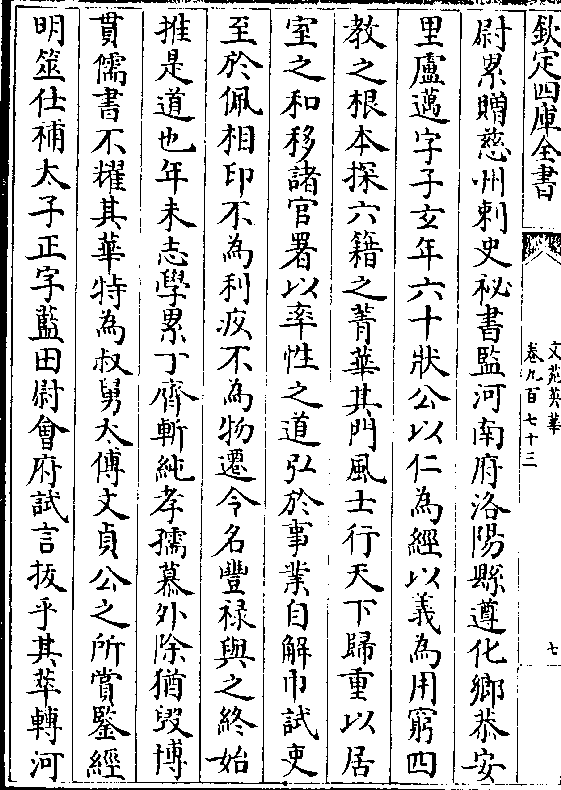 欽定四庫全書
文苑英華
卷九百七十三
七
尉累贈慈州刺史祕書監河南府洛陽縣遵化鄉恭安
里盧邁字子玄年六十狀公以仁為經以義為用窮四
教之根本探六籍之菁華其門風士行天下歸重以居
室之和移諸官署以率性之道弘於事業自解巾試吏
至於佩相印不為利疚不為物遷令名豐禄與之終始
推是道也年未志學累丁齊斬純孝孺慕外除猶毀博
貫儒書不耀其華特為叔舅太傅文貞公之所賞鑒經
明筮仕補太子正字藍田尉會府試言拔乎其萃轉河